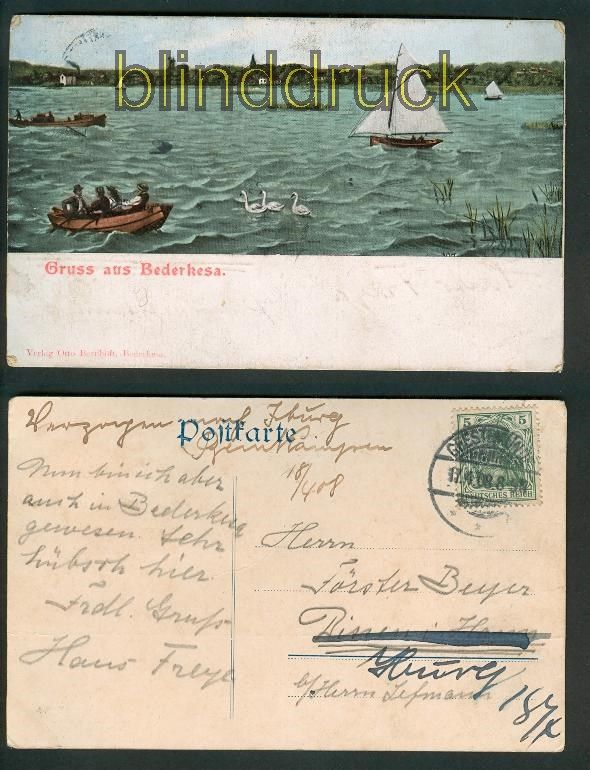 blinddruck
Gruss aus Bederkesa.
Verlag Otto Bernhöft, Bederkesa.
Verzogen nach Iburg
Postkarte
18/4 08
Nun bin ich aber
auch in Bederkesa
gewesen. Sehr
hübsch hier.
Frdl. Gruß
Hans Freye
5 5
DEUTSCHES REICH
17.4.08.8-
Herrn
Förster Beyer
Iburg
b/ Herrn Lefmann
18/4